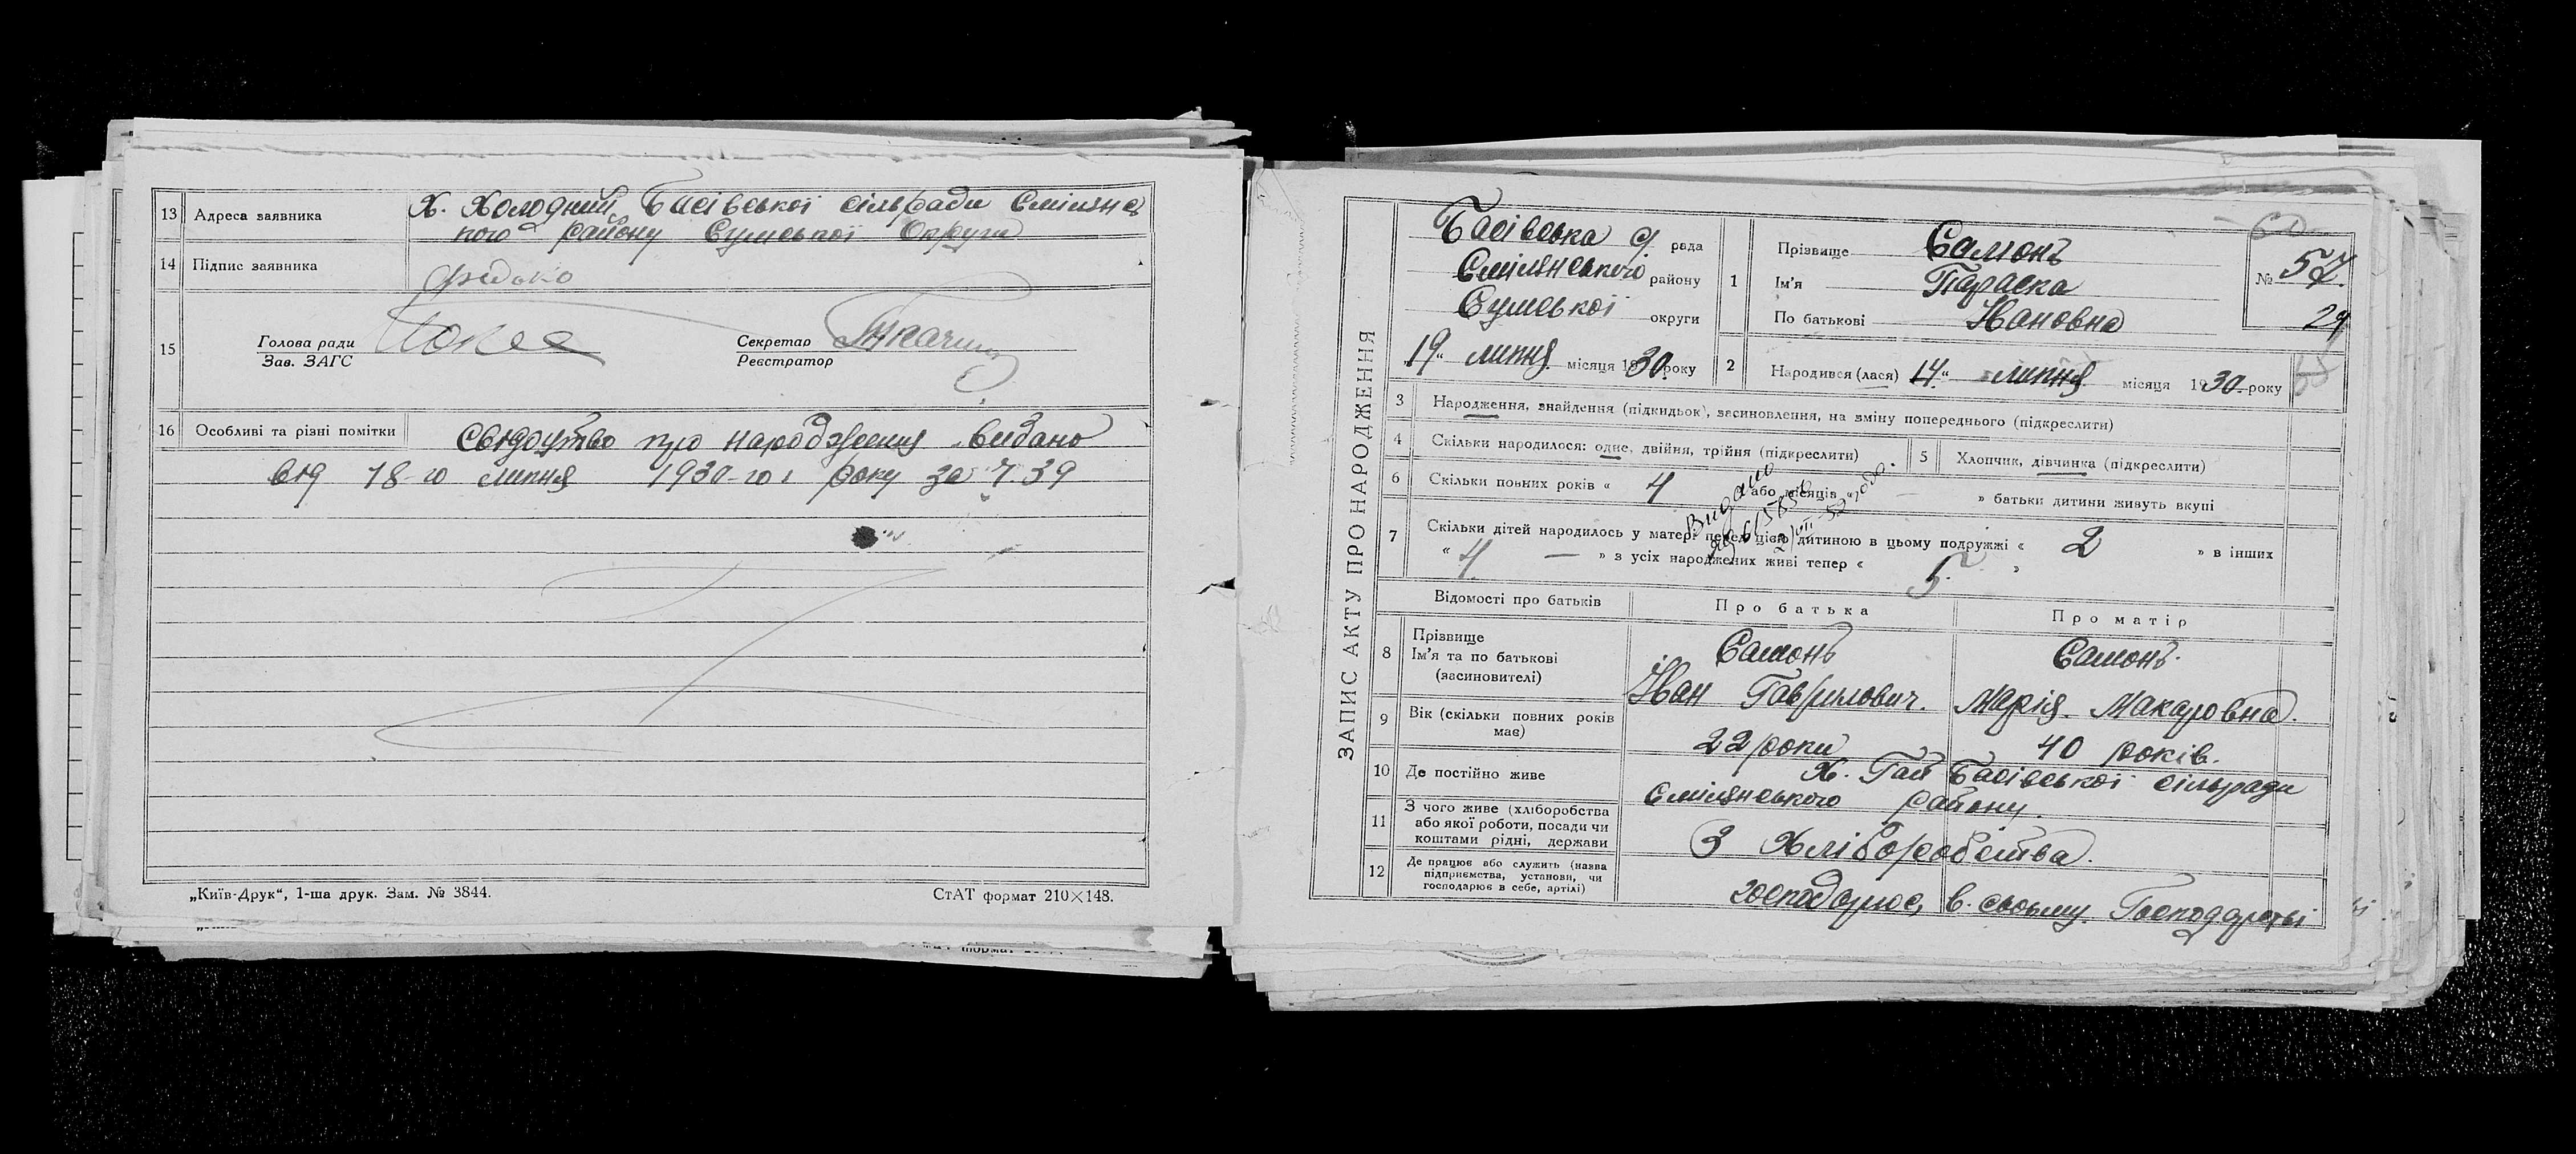 13 Адреса заявника Х. Холодний Басівської сільради Смілянсь
кого району Сумської Округи
14 Підпис заявника
15 Голова ради
Зав. ЗАГС
Секретар
Реєстратор
16 Особливі та різні помітки Свідоцтво про народження видано
від 18-го липня 1930-го року за Ч. 39
„Київ-Друк“, 1-ша друк. Зам. № 3844. СтАТ формат 210×148.
ЗАПИС АКТУ ПРО НАРОДЖЕННЯ
Басівська с рада
Смілянського району
Сумської округи
„19“ липня місяця 1930 року
1 Прізвище Самонь
Ім'я Параска
По батькові Івановна
№ 57.
29
2 Народився (лася) 14“ липня місяця 1930 року
3 Народження, знайдення (підкидьок), засиновлення, на зміну попереднього (підкреслити)
4 Скільки народилося: одне, двійня, трійня (підкреслити) 5 Хлопчик, дівчинка (підкреслити)
6 Скільки повних років « 4 або місяців « — » батьки дитини живуть вкупі
Видано
7 Скільки дітей народилось у матері перед цією дитиною в цьому подружжі « 2 » в інших
« 4 — » з усіх народжених живі тепер « 5 »
Відомості про батьків Про батька Про матір
8 Прізвище
Ім'я та по батькові
(засиновителі)
Самонь
Іван Гаврилович.
Самонь.
Марія Макаровна.
9 Вік (скільки повних років
має)
22 роки 40 років.
10 Де постійно живе Х. Гай Басівської сільради
Смілянського району.
11 З чого живе (хліборобства
або якої роботи, посади чи
коштами рідні, держави
З Хліборобства.
12 Де працює або служить (назва
підприємства, установи, чи
господарює в себе, артілі)
господарює в своьму Господарстві